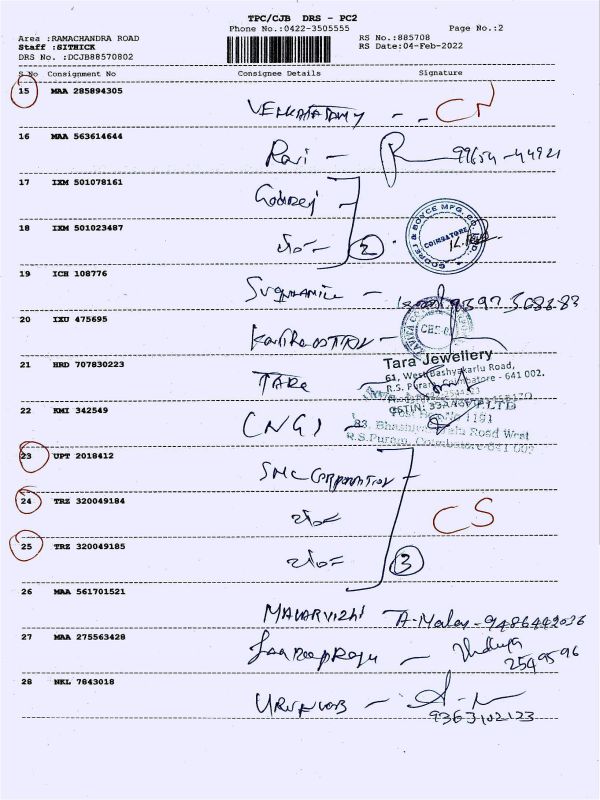 TPC/CJB DRS - PC2
Phone No.:0422-3505555
Page No.:2
Area :RAMACHANDRA ROAD
RS No.:885708
Staff :SITHICK
RS Date:04-Feb-2022
DRS No. :DCJB88570802
S No Consignment No Consignee Details Signature
15 MAA 285894305 CN
16 MAA 563614644 Ravi - 99654-44921
17 IXM 501078161 Godrej -
GODREJ & BOYCE MFG. CO. LTD. COIMBATORE
18 IXM 501023487 2
19 ICH 108776
20 IXU 475695
21 HRD 707830223 TARA
Tara Jewellery
61, West Bashyakarlu Road,
R.S. Puram, Coimbatore - 641 002.
22 KMI 342549 CNGI
83, Bhashyakarlu Road West
R.S.Puram, Coimbatore-641 002
23 UPT 2018412 SMC Corporation
24 TRZ 320049184 CS
25 TRZ 320049185 3
26 MAA 561701521 MALARVIZHI A-Malar-9486442036
27 MAA 275563428 2549596
28 NKL 7843018
9363102123